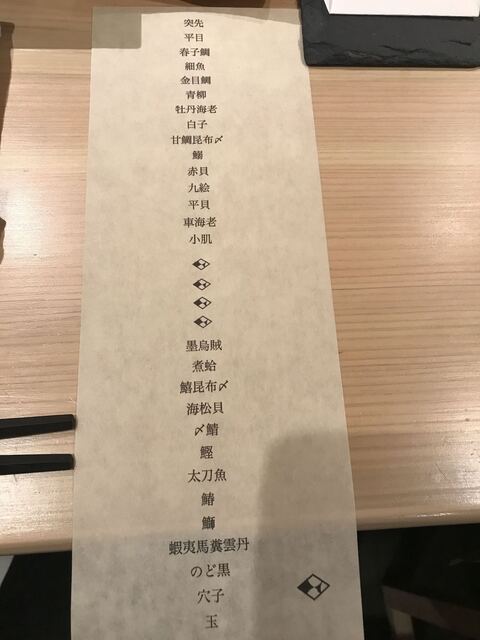 突先
平目
春子鯛
細魚
金目鯛
青柳
牡丹海老
白子
甘鯛昆布〆
鰯
赤貝
九絵
平貝
車海老
小肌
墨烏賊
煮蛤
鱚昆布〆
海松貝
〆鯖
鰹
太刀魚
鰆
鰤
蝦夷馬糞雲丹
のど黒
穴子
玉